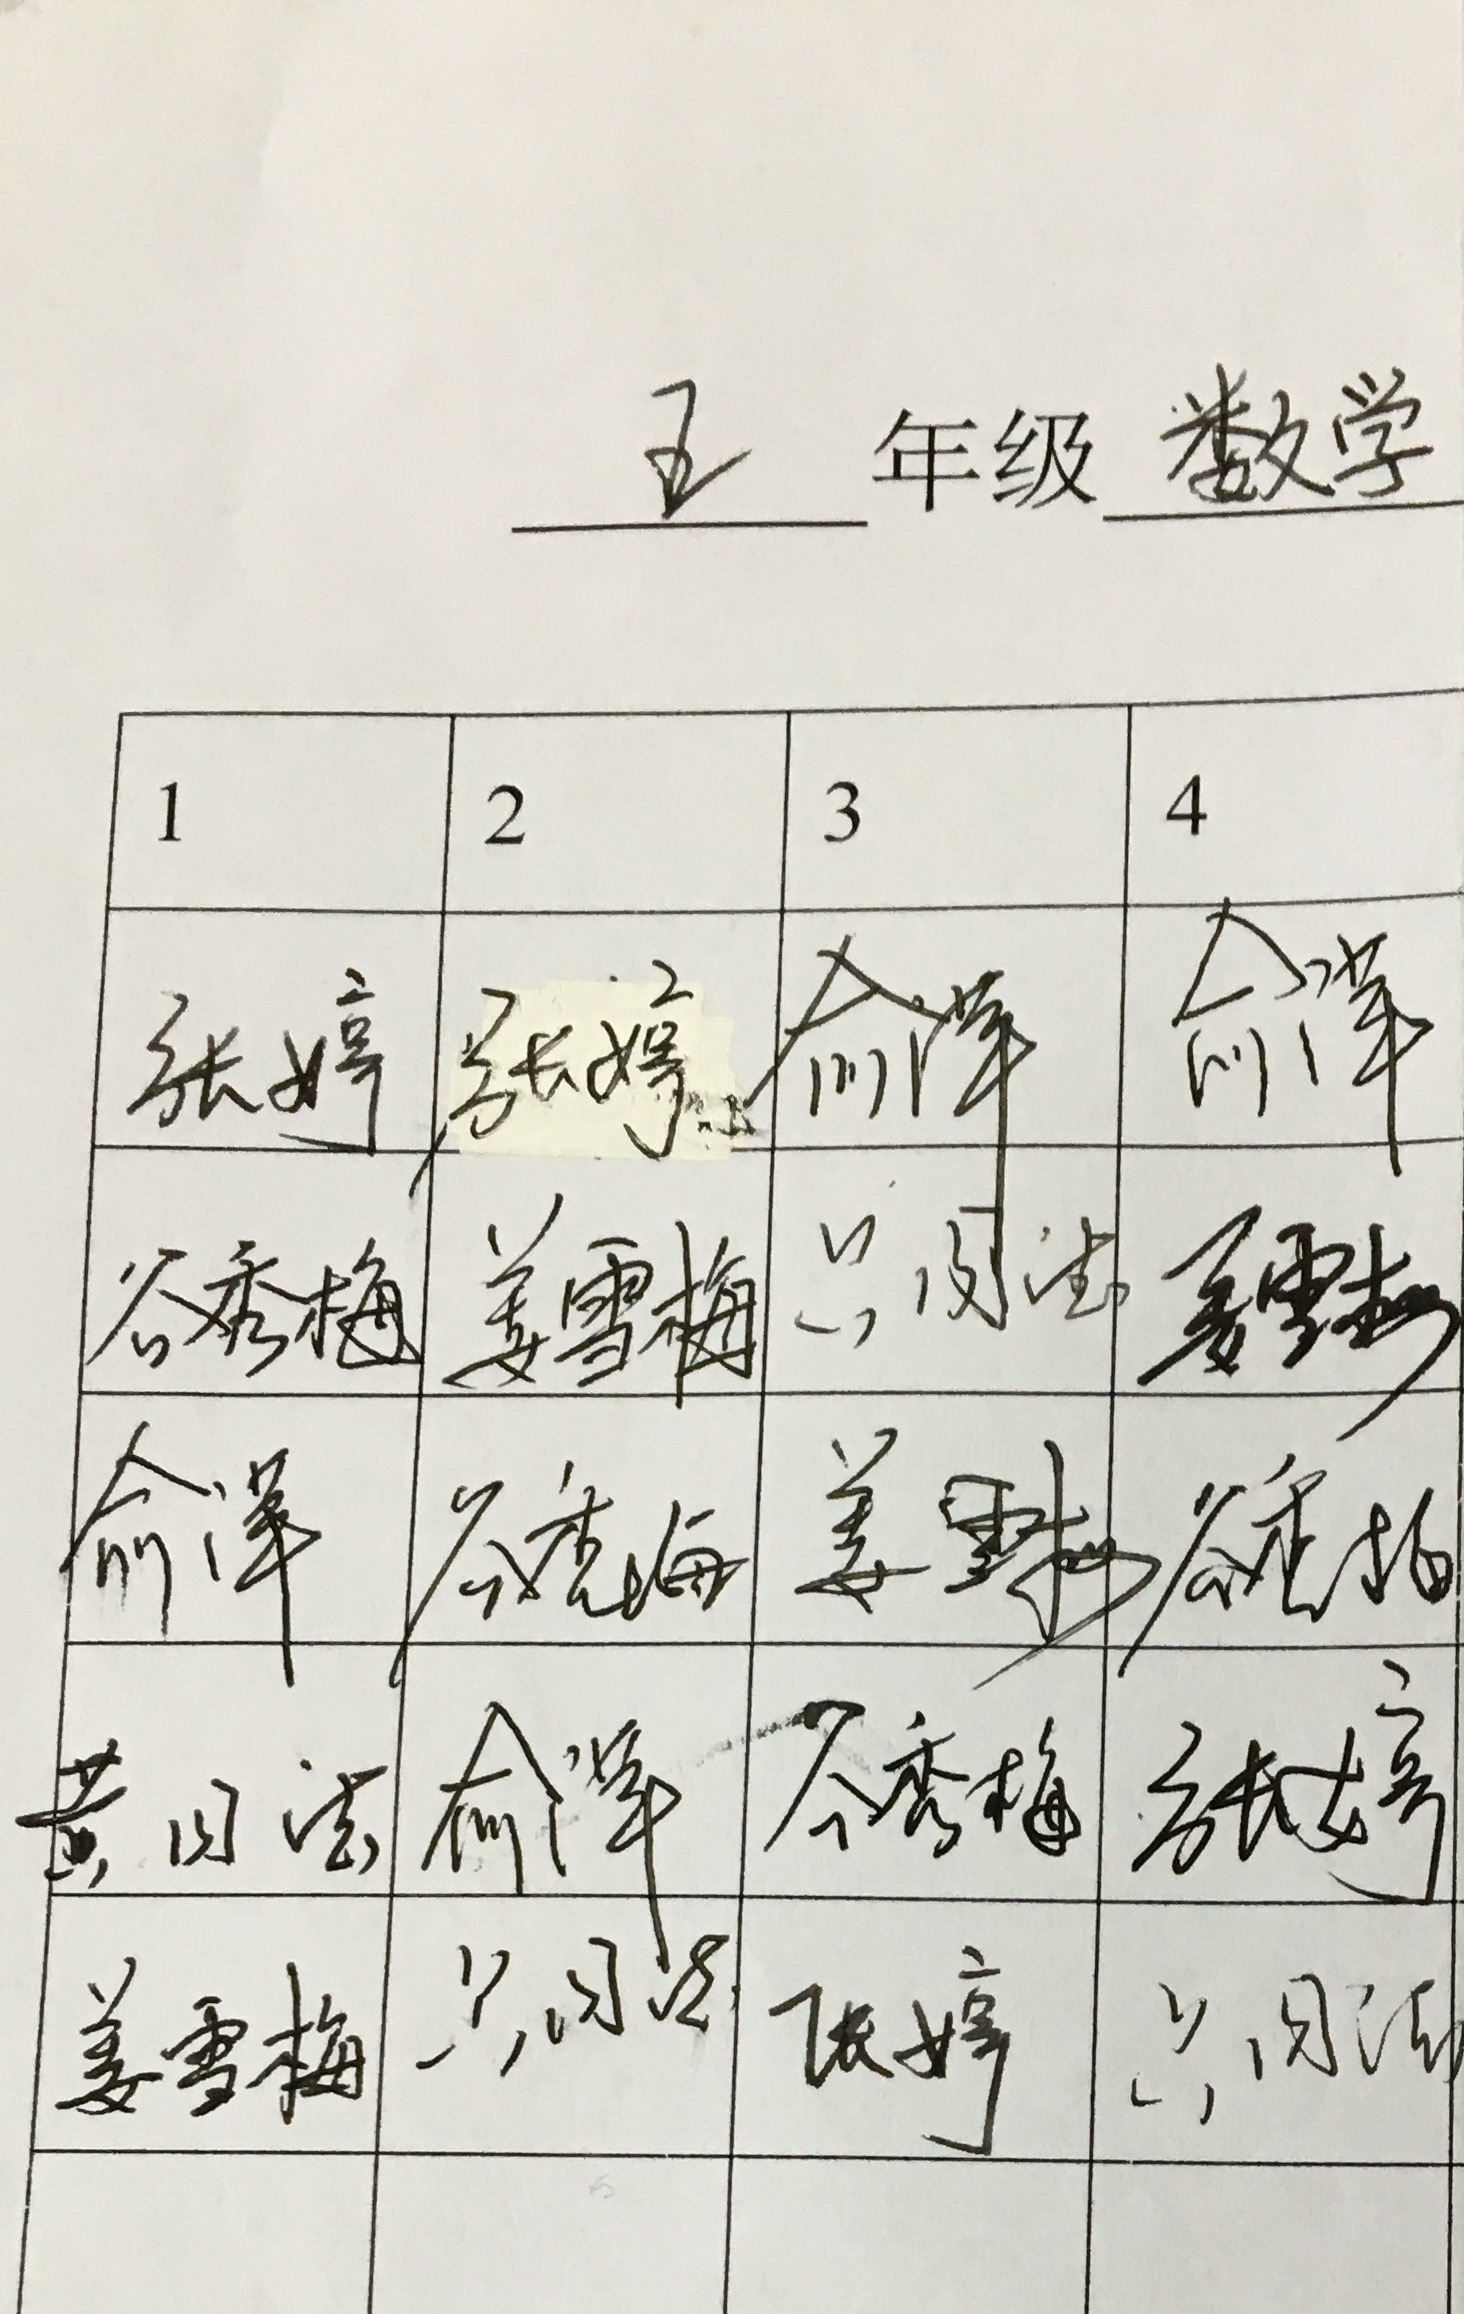 五年级数学
1 2 3 4
张婷 张婷 俞洋 俞洋
谷秀梅 姜雪梅 姜雪梅
俞洋 谷秀梅 姜雪梅 谷秀梅
黄 俞洋 谷秀梅 张婷
姜雪梅 张婷